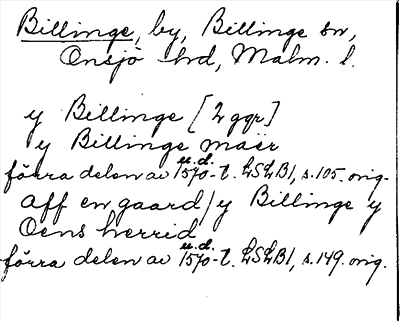 Billinge, by, Billinge sn,
Onsjö hd, Malm. l.
y Billinge [2 ggr]
y Billinge maer
förra delen av 1570-t. LSLB1, s. 105. orig.
u.d.
aff en gaard / y Billinge y
Oens herrid
förra delen av 1570-t. LSLB1, s. 149. orig.
u.d.